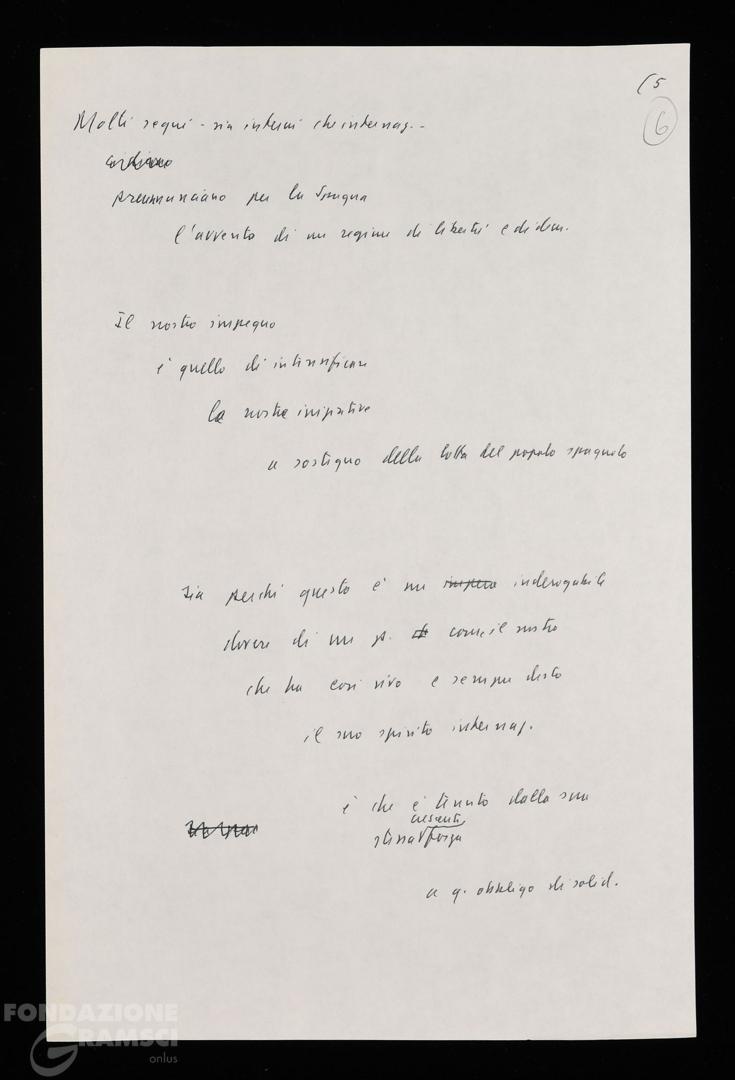 (5
6
Molti segni - sia interni che internaz. -
preannunciano per la Spagna
l'avvento di un regime di libertà e di dem.
Il nostro impegno
è quello di intensificare
le nostre iniziative
a sostegno della lotta del popolo spagnolo
sia perché questo è un inderogabile
dovere di un p. come il nostro
che ha così vivo e sempre desto
il suo spirito internaz.
e che è tenuto dalla sua
crescente
stessa forza
a q. obbligo di solid.
FONDAZIONE
GRAMSCI
onlus